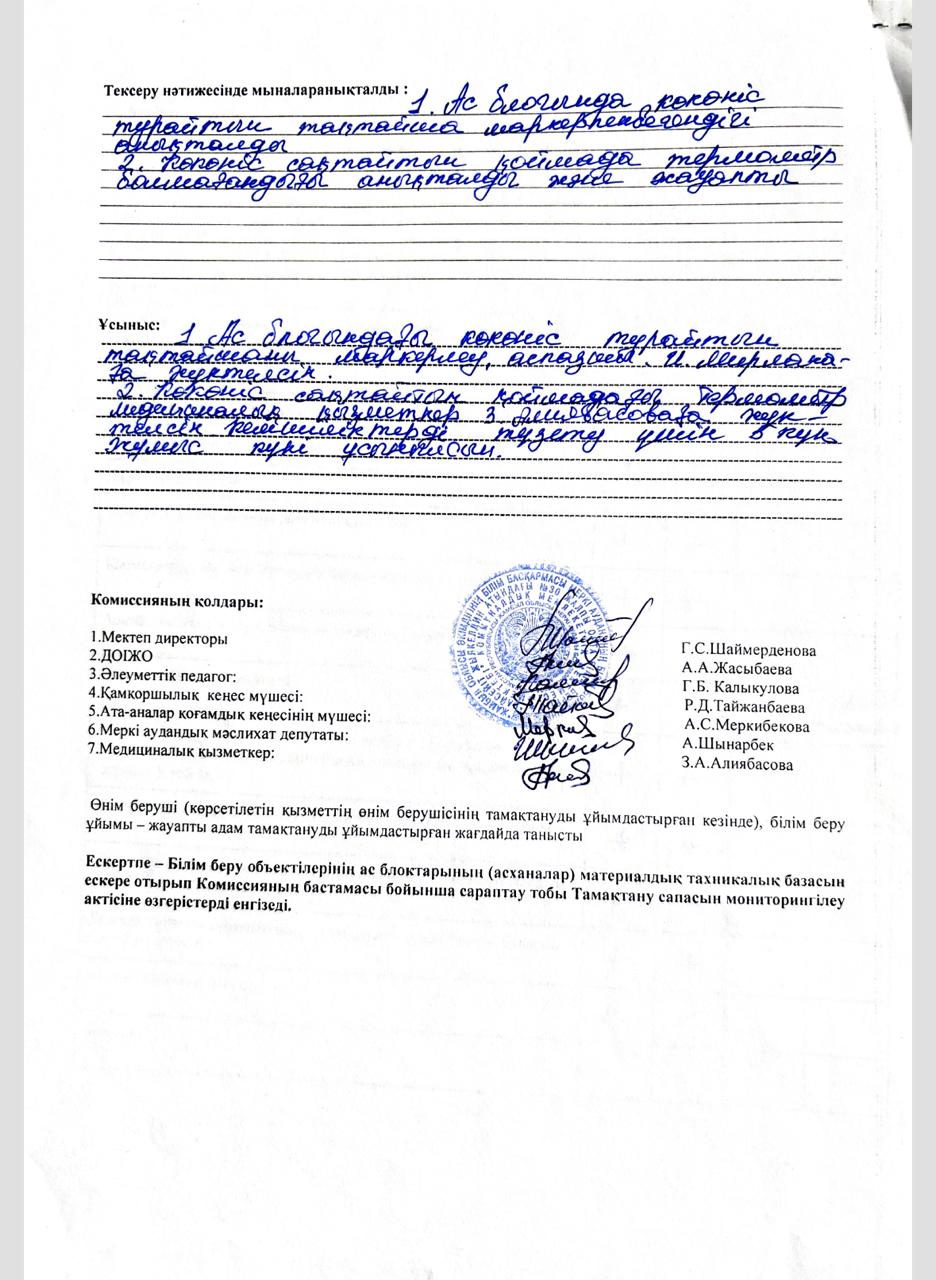 Тексеру нәтижесінде мыналаранықталды : 1. Ас блогында көкөніс
турайтын тақтайша маркерленбегендігі
анықталды
2. Көкөніс сақтайтын қоймада термометр
болмағандығы анықталды және жауапты
Ұсыныс: 1 Ас блогындағы көкөніс турайтын
тақтайшаны маркерлеу, аспазшы. И.
ға жүктелсін.
2. Көкөніс сақтайтын қоймадағы термометр
медициналық қызметкер З. Алиябасоваға жүк-
телсін кемшіліктерді түзету үшін 3 күн
жұмыс күні ұсынылсын.
Комиссияның қолдары:
1.Мектеп директоры Г.С.Шаймерденова
2.ДОІЖО А.А.Жасыбаева
3.Әлеуметтік педагог: Г.Б. Калыкулова
4.Қамқоршылық кенес мүшесі: Р.Д.Тайжанбаева
5.Ата-аналар қоғамдық кеңесінің мүшесі: А.С.Меркибекова
6.Меркі аудандық мәслихат депутаты: А.Шынарбек
7.Медициналық қызметкер: З.А.Алиябасова
Өнім беруші (көрсетілетін қызметтің өнім берушісінің тамақтануды ұйымдастырған кезінде), білім беру
ұйымы – жауапты адам тамақтануды ұйымдастырған жағдайда танысты
Ескертпе – Білім беру объектілерінің ас блоктарының (асханалар) материалдық тахникалық базасын
ескере отырып Комиссияның бастамасы бойынша сараптау тобы Тамақтану сапасын мониторингілеу
актісіне өзгерістерді енгізеді.